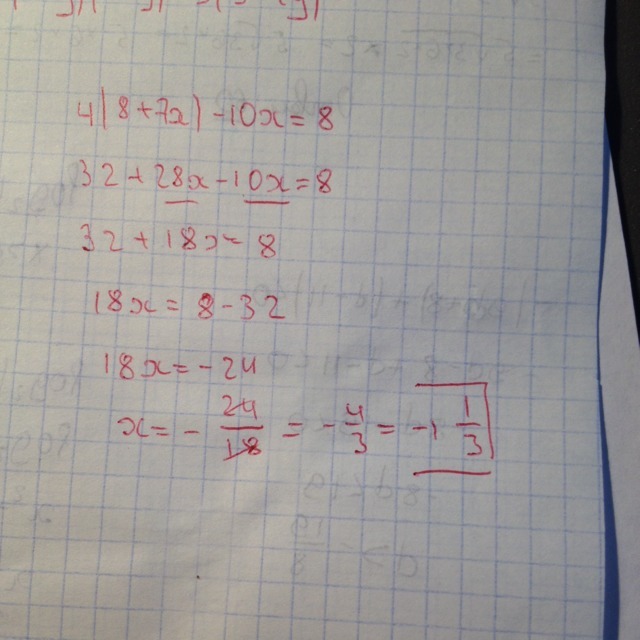 4(8+7x)-10x=8
32+28x-10x=8
32+18x=8
18x=8-32
18x=-24
x=-24/18=-4/3=-1 1/3